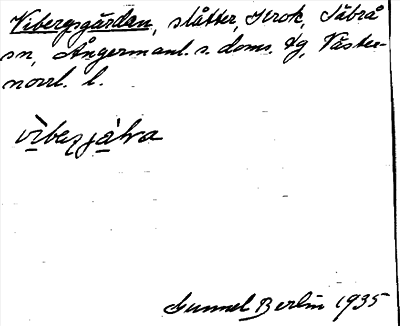 Vibergsgården, slåtter, Krok, Säbrå
sn, Ångermanl. s. doms. tg, Väster-
norrl. l.
vibezjáɫra
Gunnel Berlin 1935